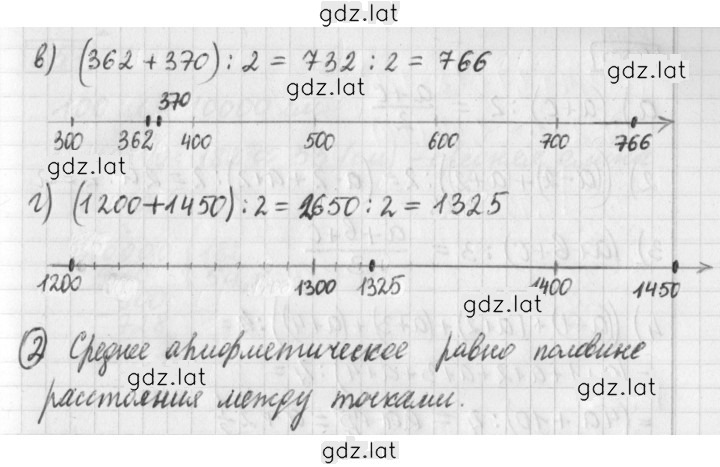 gdz.lat
в) (362 + 370) : 2 = 732 : 2 = 766
gdz.lat
gdz.lat
370
300 362 400 500 600 700 766
gdz.lat
г) (1200+1450) : 2 = 2650 : 2 = 1325
1200 1300 1325 1400 1450
gdz.lat
② Среднее арифметическое равно половине
gdz.lat
gdz.lat
расстояния между точками.
gdz.lat